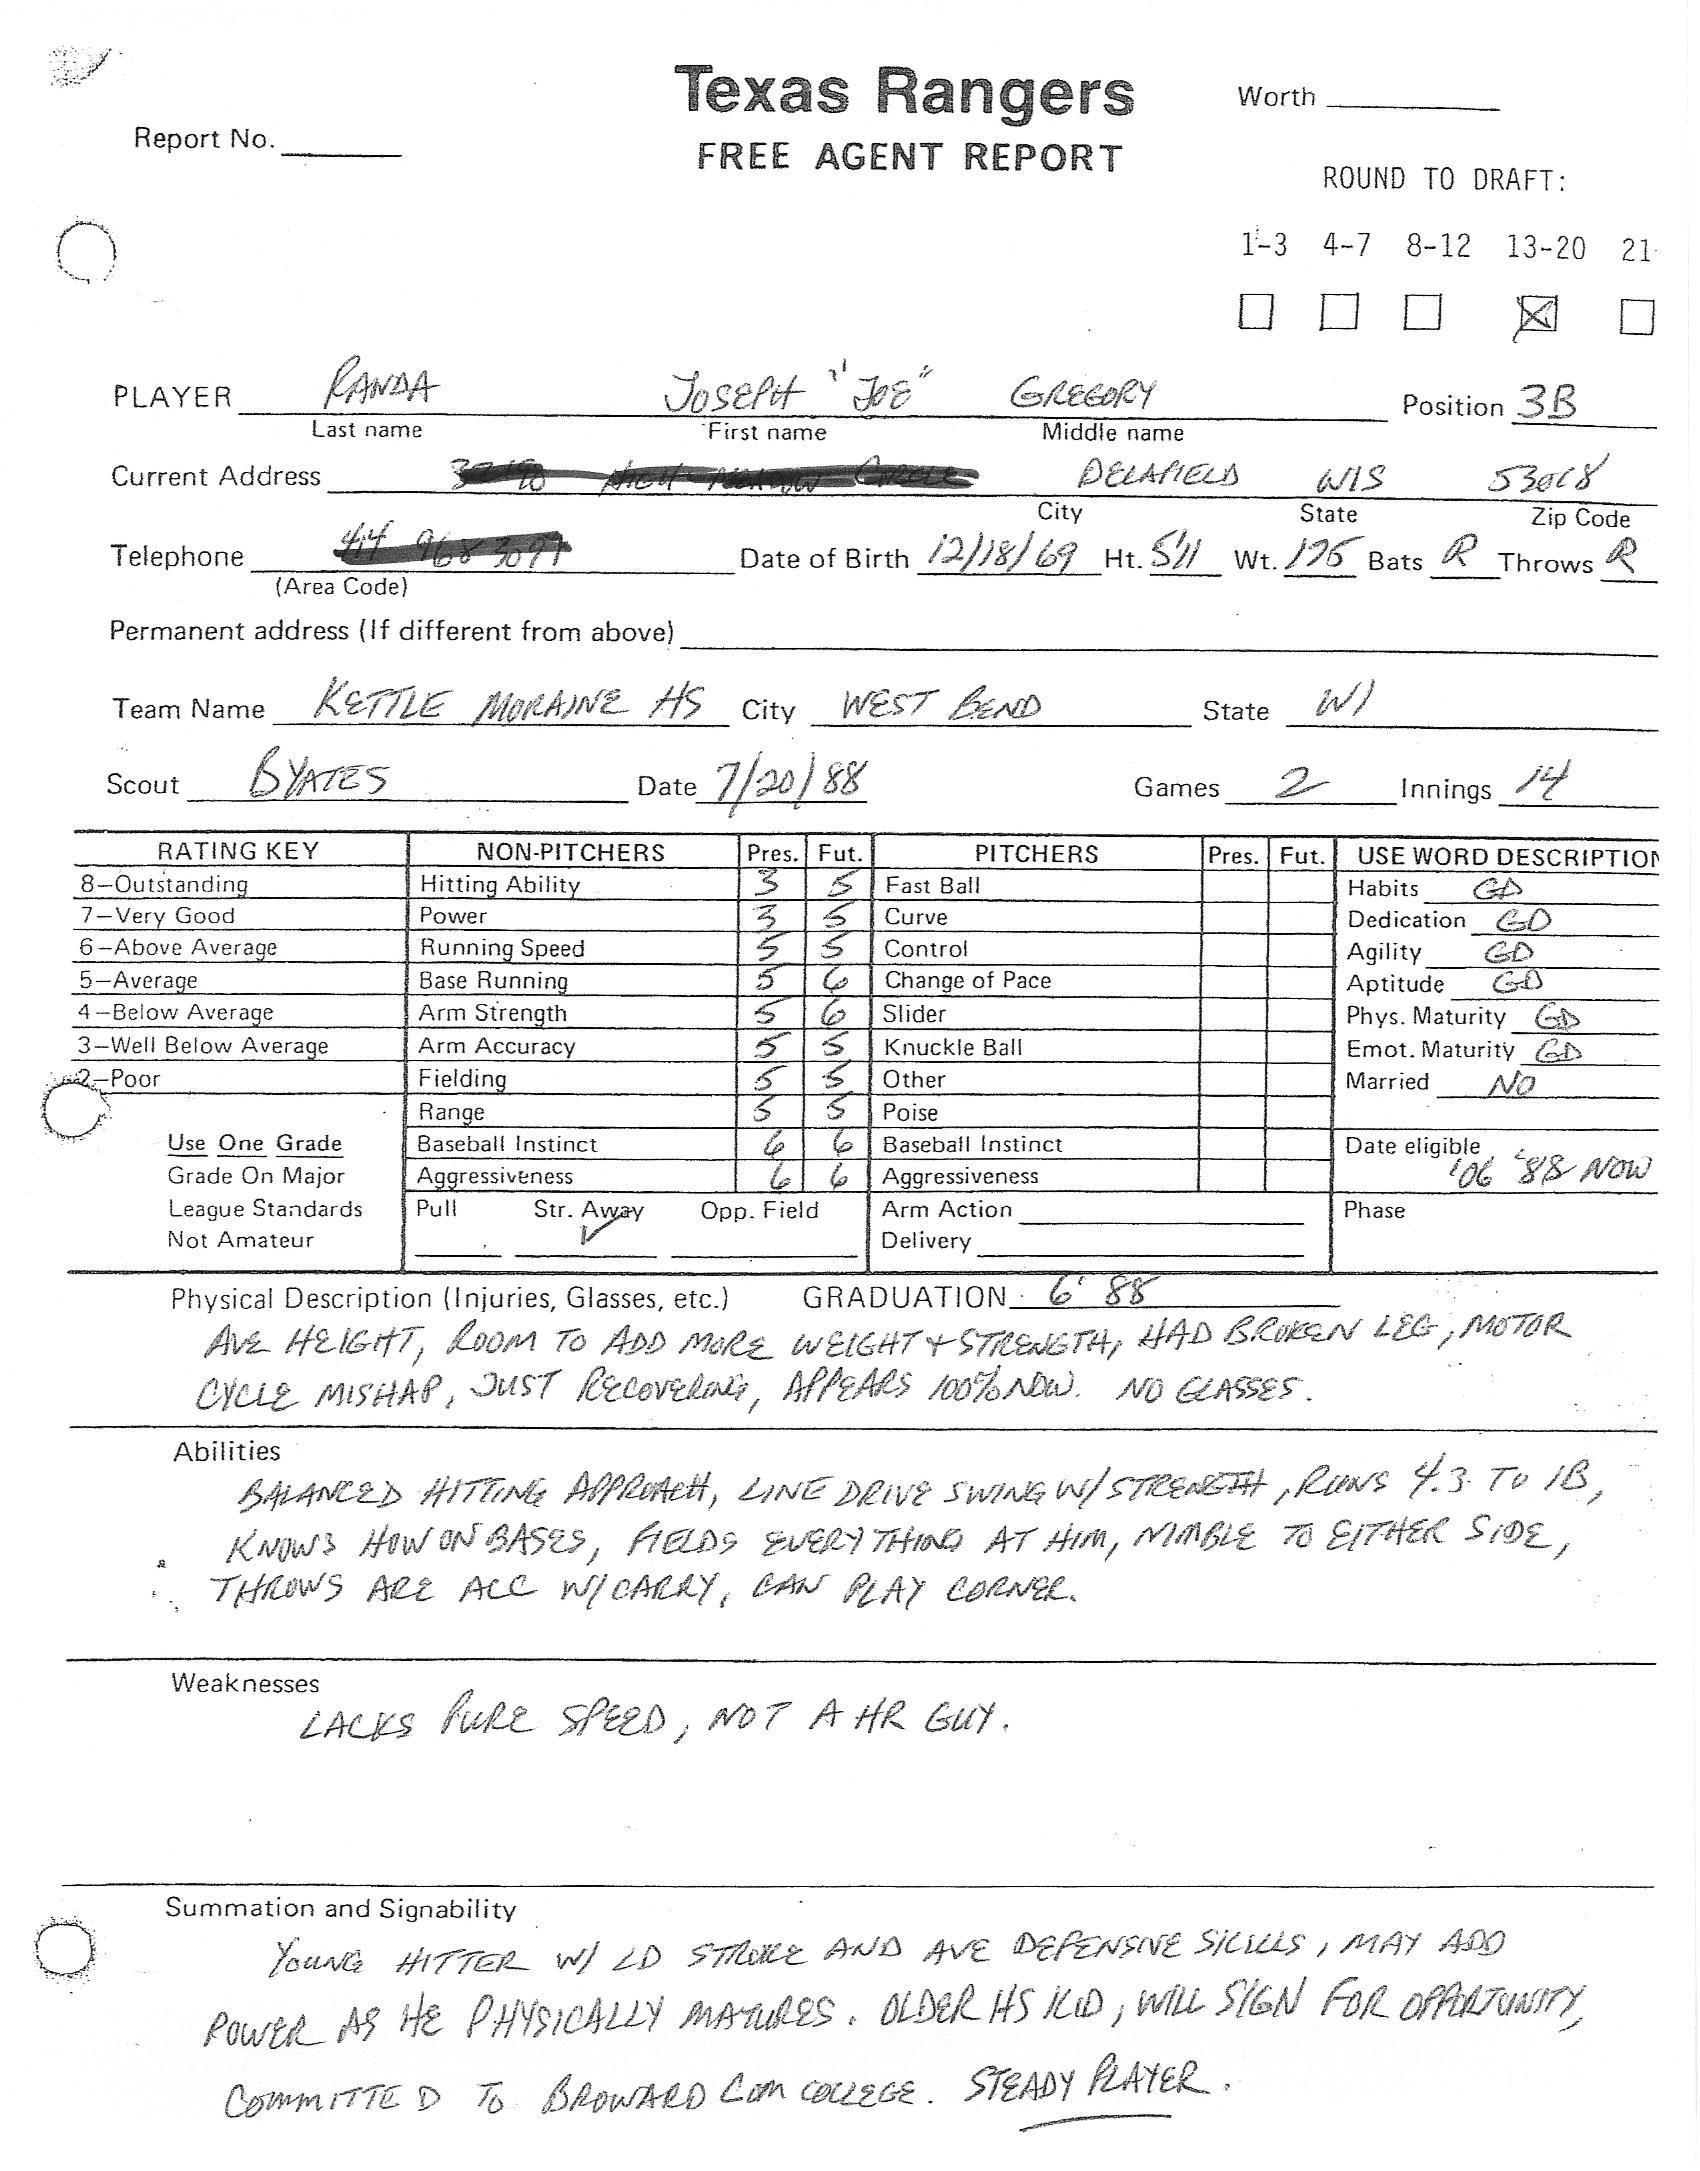 Texas Rangers
Worth
Report No.
FREE AGENT REPORT
ROUND TO DRAFT:
1-3 4-7 8-12 13-20 21
PLAYER RANDA JOSEPH "JOE" GREGORY Position 3B
Last name First name Middle name
Current Address DELAFIELD WIS 53018
City State Zip Code
Telephone Date of Birth 12/18/69 Ht. 5'11 Wt. 175 Bats R Throws R
(Area Code)
Permanent address (If different from above)
Team Name KETTLE MORAINE HS City WEST BEND State WI
Scout BYATES Date 7/20/88 Games 2 Innings 14
RATING KEY NON-PITCHERS Pres. Fut. PITCHERS Pres. Fut. USE WORD DESCRIPTION
8—Outstanding Hitting Ability 3 5 Fast Ball Habits GD
7—Very Good Power 3 5 Curve Dedication GD
6—Above Average Running Speed 5 5 Control Agility GD
5—Average Base Running 5 6 Change of Pace Aptitude GD
4—Below Average Arm Strength 5 6 Slider Phys. Maturity GD
3—Well Below Average Arm Accuracy 5 5 Knuckle Ball Emot. Maturity GD
2—Poor Fielding 5 5 Other Married NO
Range 5 5 Poise
Use One Grade Baseball Instinct 6 6 Baseball Instinct Date eligible
Grade On Major Aggressiveness 6 6 Aggressiveness '06 '88 NOW
League Standards Pull Str. Away Opp. Field Arm Action Phase
Not Amateur Delivery
Physical Description (Injuries, Glasses, etc.) GRADUATION 6' 88
AVE HEIGHT, ROOM TO ADD MORE WEIGHT & STRENGTH, HAD BROKEN LEG, MOTOR
CYCLE MISHAP, JUST RECOVERING, APPEARS 100% NOW. NO GLASSES.
Abilities
BALANCED HITTING APPROACH, LINE DRIVE SWING W/ STRENGTH, RUNS 4.3 TO 1B,
KNOWS HOW ON BASES, FIELDS EVERYTHING AT HIM, NIMBLE TO EITHER SIDE,
THROWS ARE ACC W/ CARRY, CAN PLAY CORNER.
Weaknesses
LACKS PURE SPEED, NOT A HR GUY.
Summation and Signability
YOUNG HITTER W/ LD STROKE AND AVE DEFENSIVE SKILLS, MAY ADD
POWER AS HE PHYSICALLY MATURES. OLDER HS KID, WILL SIGN FOR OPPORTUNITY,
COMMITTED TO BROWARD COM COLLEGE. STEADY PLAYER.